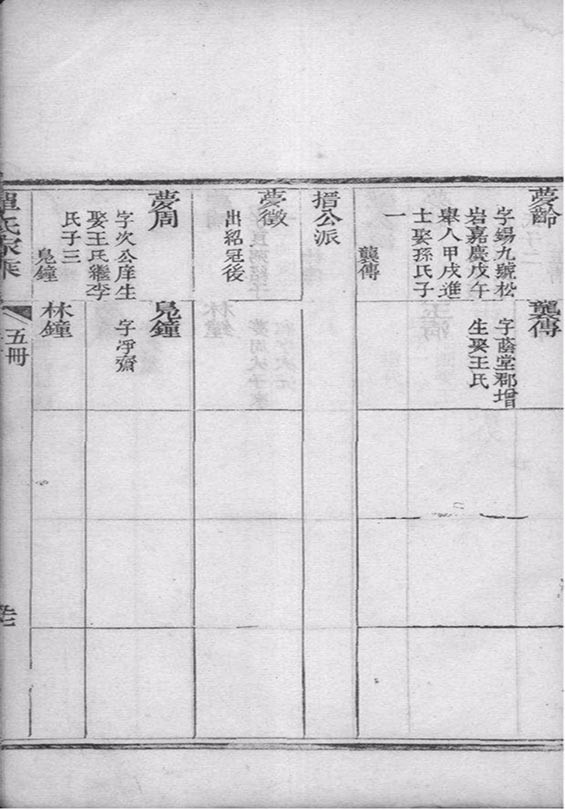 夢齡
字錫九號松
岩嘉慶戊午
舉人甲戌進
士娶孫氏子
一
龔傳
龔傳
字蔭堂郡增
生娶王氏
搢公派
夢徵
出紹冠後
夢周
字次公庠生
娶王氏繼李
氏子三
鳧鐘
鳧鐘
字凈齋
林鐘
單氏家乘
五冊